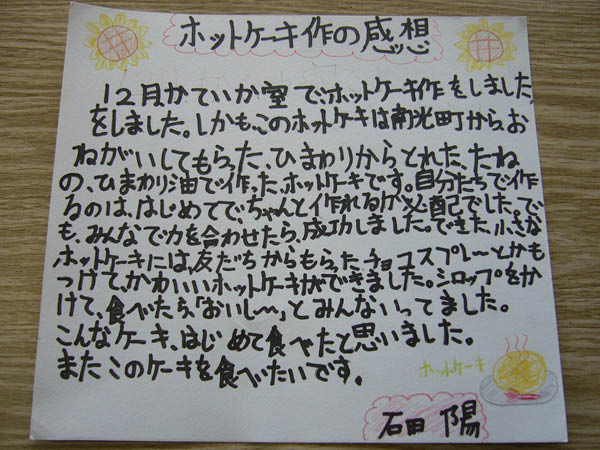 ホットケーキ作の感想
12月かていか室でホットケーキ作をしました
をしました。しかも、このホットケーキは南光町からお
ねがいしてもらった、ひまわりからとれた、たね
の、ひまわり油で作った、ホットケーキです。自分たちで作
るのは、はじめてで、ちゃんと作れるか心配でした。で
も、みんなで力を合わせたら、成功しました。できた、小さな
ホットケーキには、友だちからもらったチョコスプレーとかも
つけて、かわいいホットケーキができました。シロップをか
けて、食べたら、「おいし〜」、とみんないってました。
こんなケーキ、はじめて食べたと思いました。
またこのケーキを食べたいです。
ホットケーキ
石田 陽